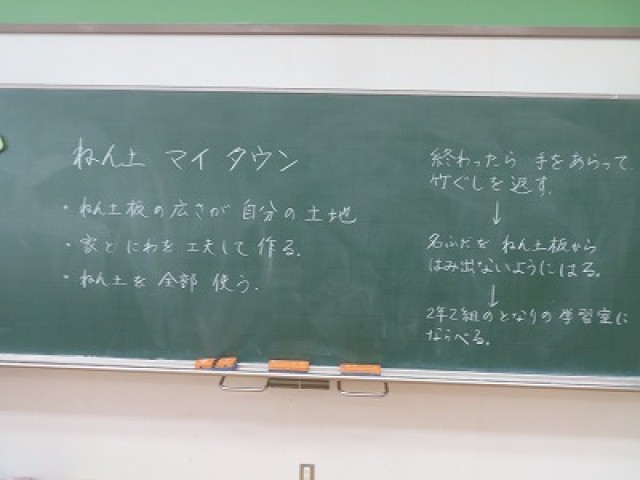 ねん土 マイ タウン
・ねん土板の広さが自分の土地
・家とにわを工夫して作る。
・ねん土を全部使う。
終わったら 手をあらって、
竹ぐしを返す。
↓
名ふだを ねん土板から
はみ出ないようにはる。
↓
2年2組のとなりの学習室に
ならべる。